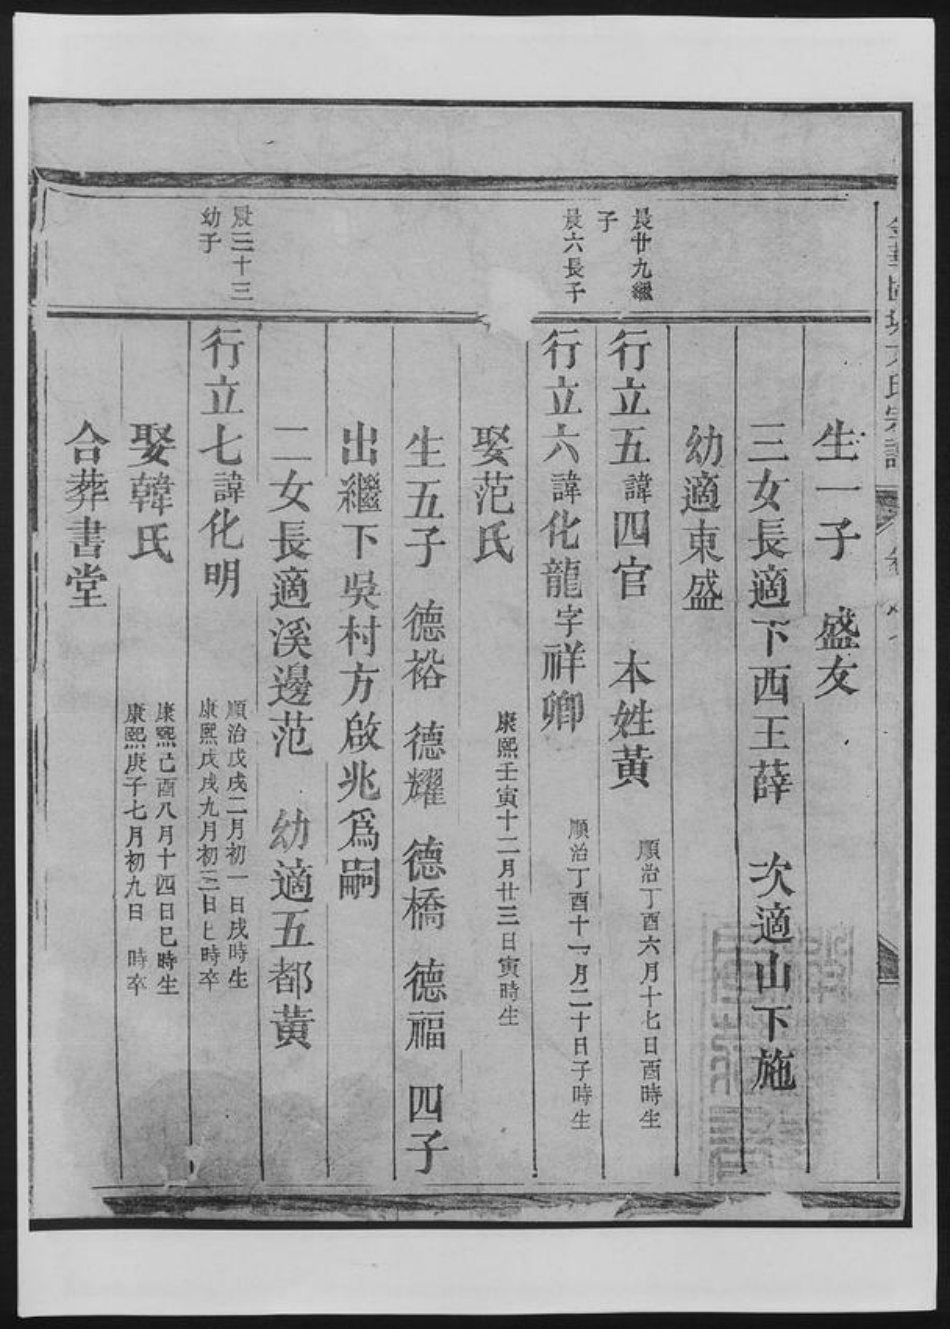 生一子　盛友
三女長適下西王薛　次適山下施
幼適東盛
晨廿九繼
子
行立五諱四官　本姓黃　順治丁酉六月十七日酉時生
晨六長子
行立六諱化龍字祥卿　順治丁酉十一月二十日子時生
娶范氏　康熙壬寅十二月廿三日寅時生
生五子　德裕　德耀　德橋　德福　四子
出繼下吳村方啟兆爲嗣
二女長適溪邊范　幼適五都黃
晨三十三
幼子
行立七諱化明　順治戊戌二月初一日戌時生
康熙戊戌九月初三日　時卒
娶韓氏　康熙己酉八月十四日巳時生
康熙庚子七月初九日　時卒
合葬書堂